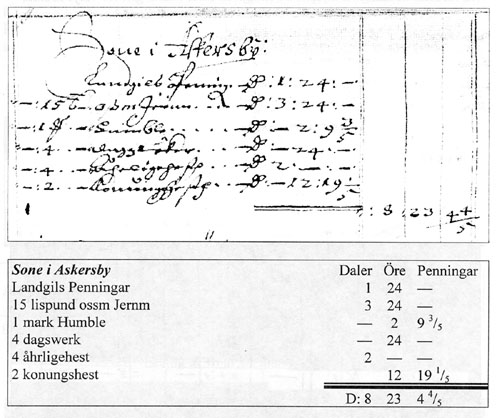 Sone i Askersby.
Landgils Penning D : 1 : 24 : –
– : 15 D : 3 : 24 : –
– : 1 Humble D – : 2 : 9 3/5
– : 4 D – 24 – : –
– : 4 D 2 – : –
– : 2 – Konungshest D – 12 : 19 1/5
: 8 : 23 4 4/5
Sone i Askersby Daler Öre Penningar
Landgils Penningar 1 24 —
15 lispund ossm Jernm 3 24 —
1 mark Humble — 2 9 3/5
4 dagswerk — 24 —
4 åhrligehest 2 — —
2 konungshest 12 19 1/5
D: 8 23 4 4/5